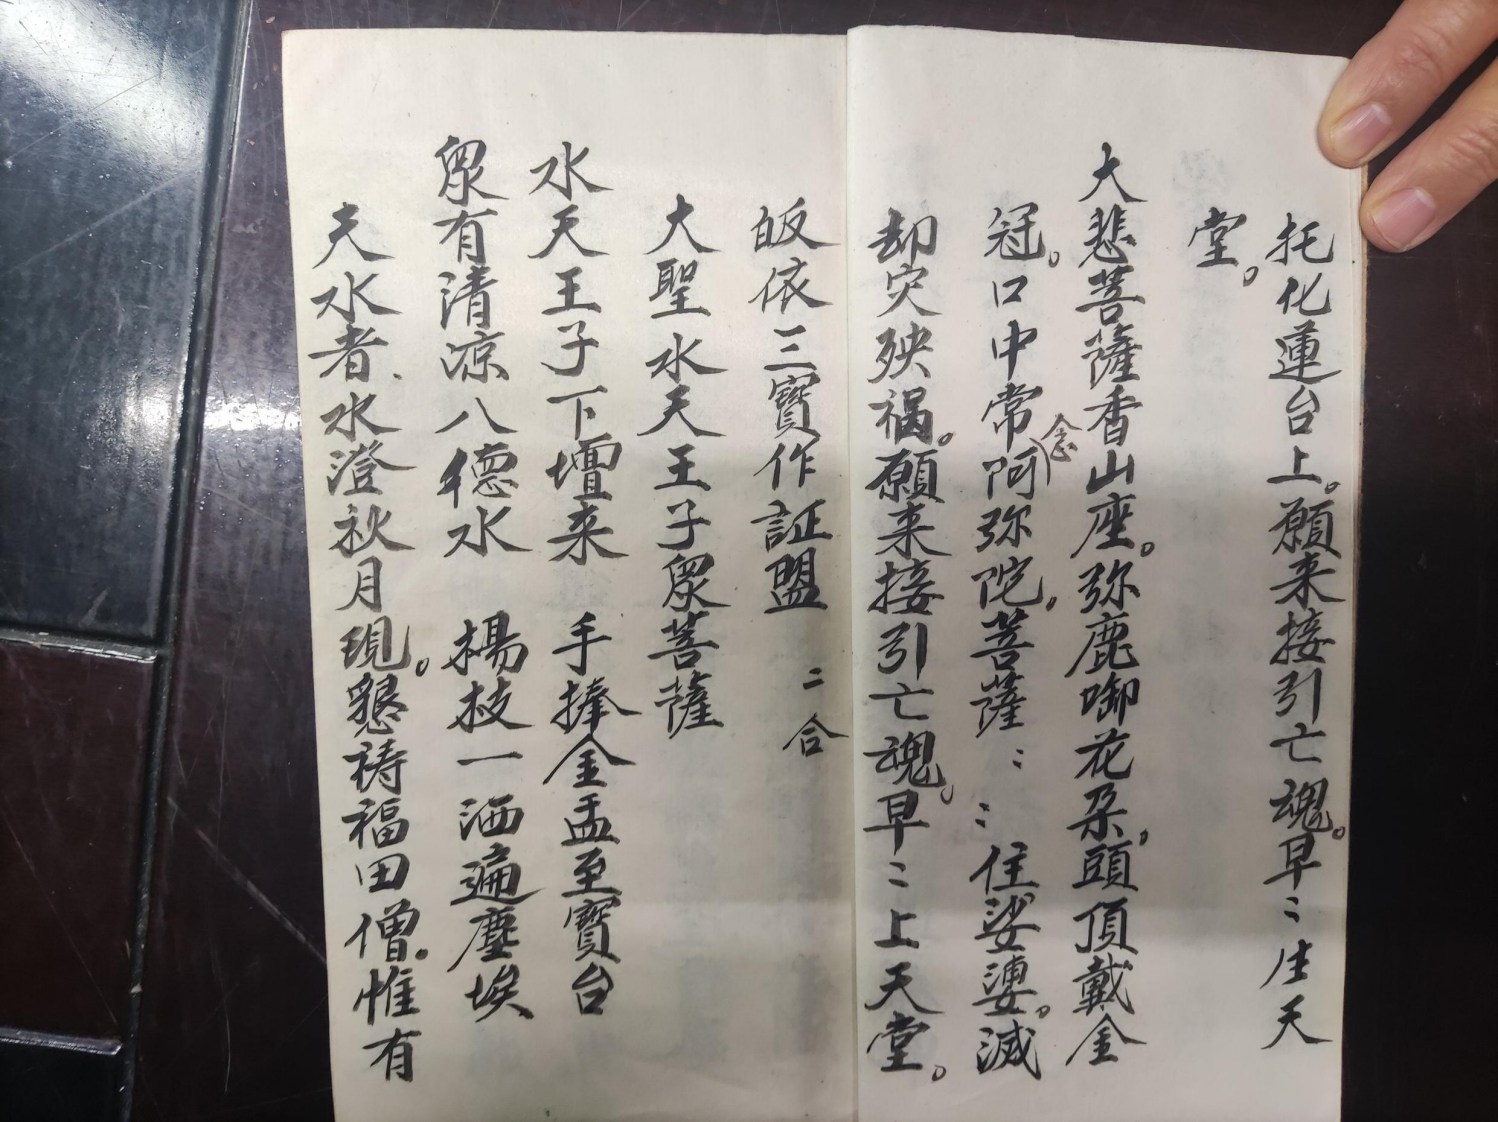 托化蓮台上。願来接引亡魂。早〻生天
堂。
大悲菩薩香山座。弥鹿啣花朵，頭頂戴金
冠。口中常念阿弥陀，菩薩〻〻住娑婆。滅
却灾殃禍。願来接引亡魂。早〻上天堂。
皈依三寶作証盟　二合
大聖水天王子眾菩薩
水天王子下壇来　手捧金盂至寶台
眾有清凉八德水　楊枝一洒遍塵埃
夫水者、水澄秋月現。懇祷福田僧。惟有